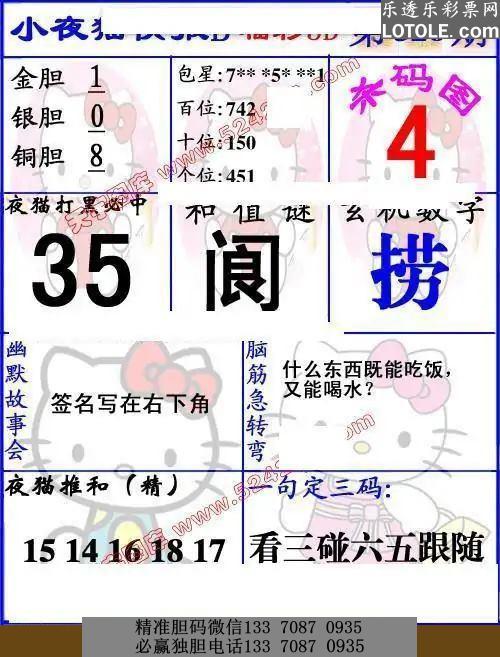 乐透乐彩票网
LOTOLE.COM
小夜猫
福彩3D
第
期
金胆 1
银胆 0
铜胆 8
包星:7** *5* **1
百位:742
十位:150
个位:451
杀码图
4
夜猫打黑必中
35
和值谜
阆
玄机数字
捞
幽默故事会
签名写在右下角
脑筋急转弯
什么东西既能吃饭,
又能喝水?
夜猫推和(精)
15 14 16 18 17
一句定三码:
看三碰六五跟随
精准胆码微信133 7087 0935
必赢独胆电话133 7087 0935